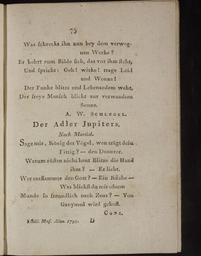 75
Was schreckt ihn nun bey dem verwog-
nen Werke?
Er kehrt zum Bilde sich, das vor ihm steht,
Und spricht: Geh! wirke! trage Leid
und Wonne!
Der Funke blitzt und Lebensodem weht,
Der freye Mensch blickt zur verwandten
Sonne.
A. W. SCHLEGEL.
Der Adler Jupiters,
Nach Martial.
Sage mir, König der Vögel, wen trägt dein
Fittig? — den Donnerer.
Warum
nicht keine Blitze die Hand
ihm? — Er liebt.
den Gott? — Ein
Was blickst du mit
Munde so freundlich nach Zeus? — Von
Ganymed wird gekost.
CONZ.
Schill. Mus. Alm. 179
D